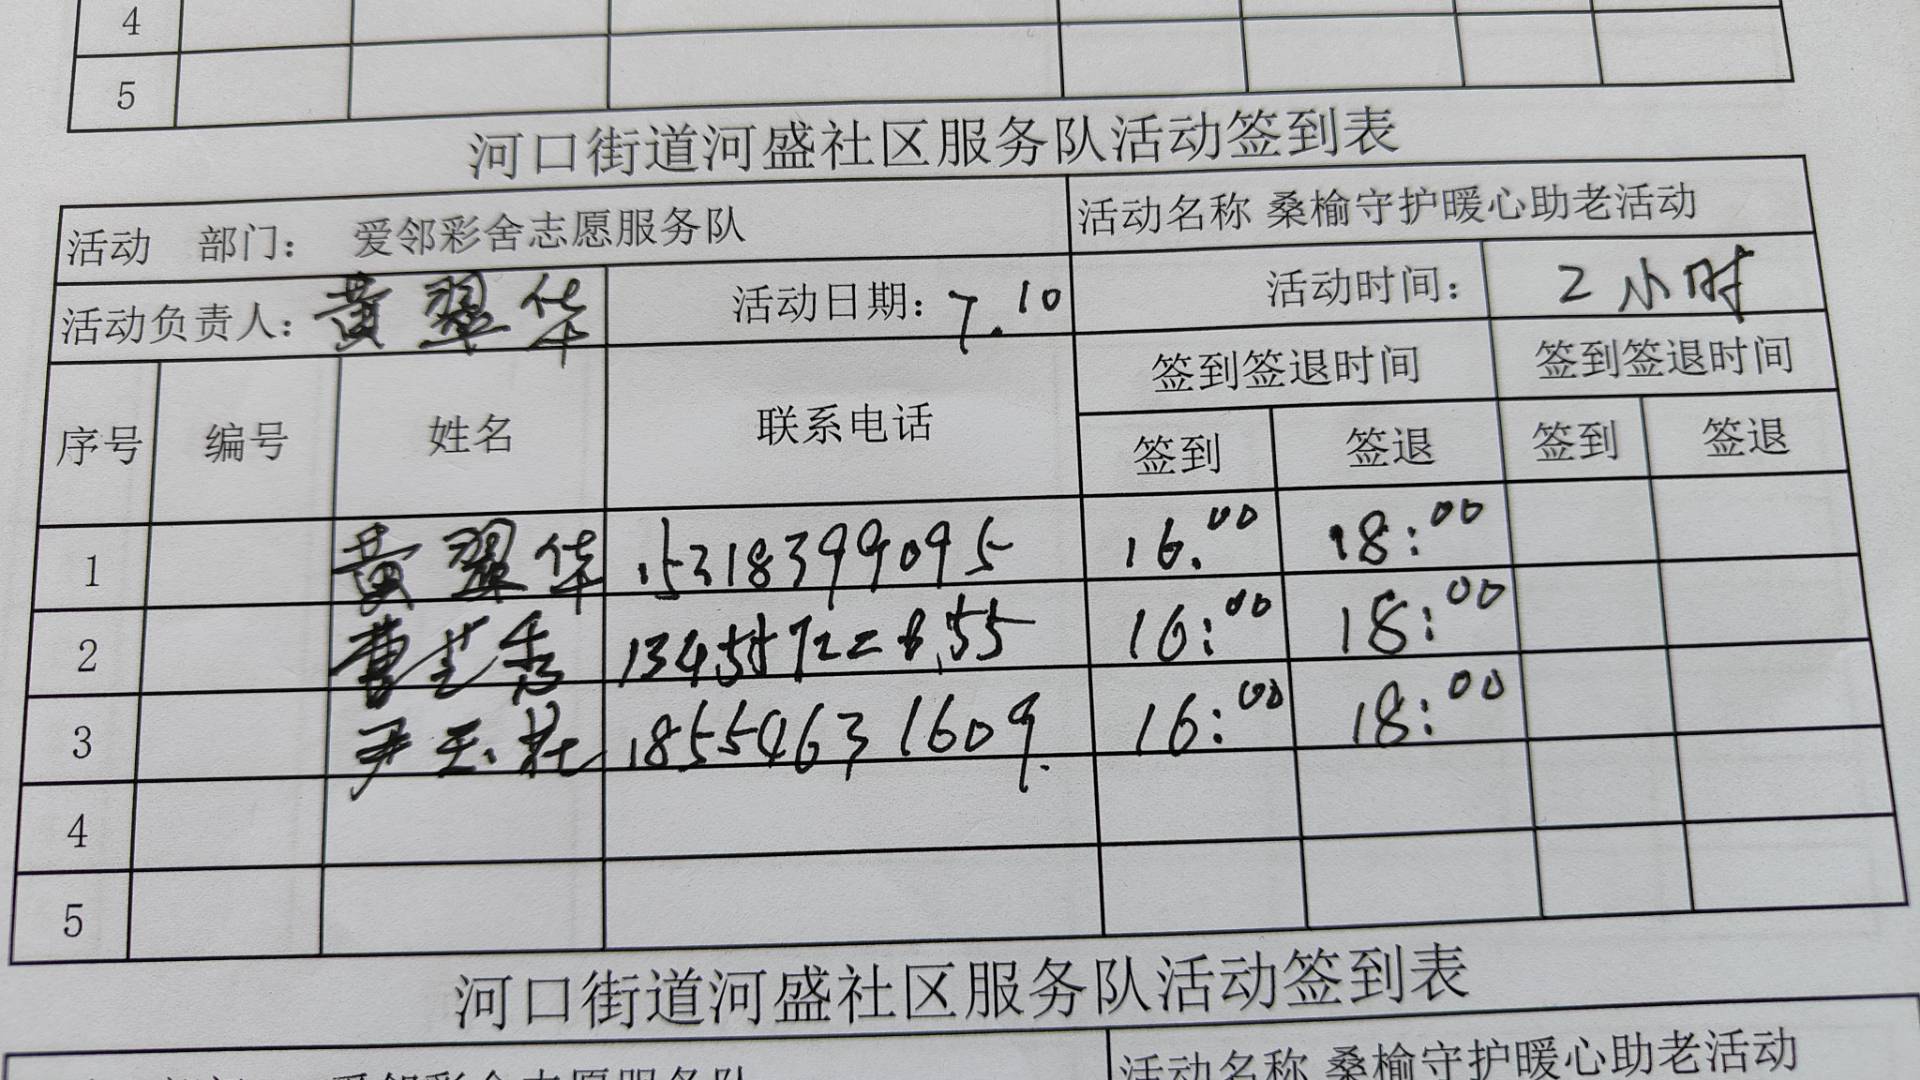 4
5
河口街道河盛社区服务队活动签到表
活动 部门： 爱邻彩舍志愿服务队 活动名称 桑榆守护暖心助老活动
活动负责人：黄翠华 活动日期：7.10 活动时间： 2小时
签到签退时间 签到签退时间
序号 编号 姓名 联系电话 签到 签退 签到 签退
1 黄翠华 15318399095 16.00 18:00
2 曹 秀 16:00 18:00
3 尹玉 18554631609. 16:00 18:00
4
5
河口街道河盛社区服务队活动签到表
活动名称 桑榆守护暖心助老活动